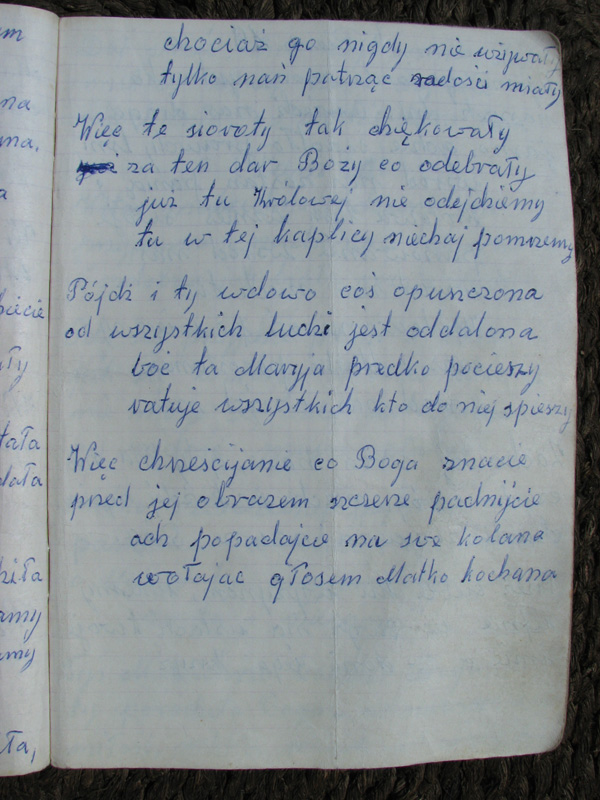 chociaż go nigdy nie używały
tylko nań patrząc radości miały
Więc te sieroty tak dziękowały
za ten dar Boży co odebrały
już tu Królowej nie odejdziemy
tu w tej kaplicy niechaj pomrzemy
Pójdź i ty wdowo coś opuszczona
od wszystkich ludzi jest oddalona
boć ta Maryja prędko pocieszy
ratuje wszystkich kto do niej spieszy
Więc chrześcijanie co Boga znacie
przed jej obrazem szczerze padnijcie
ach popadajcie na swe kolana
wołając głosem Matko kochana